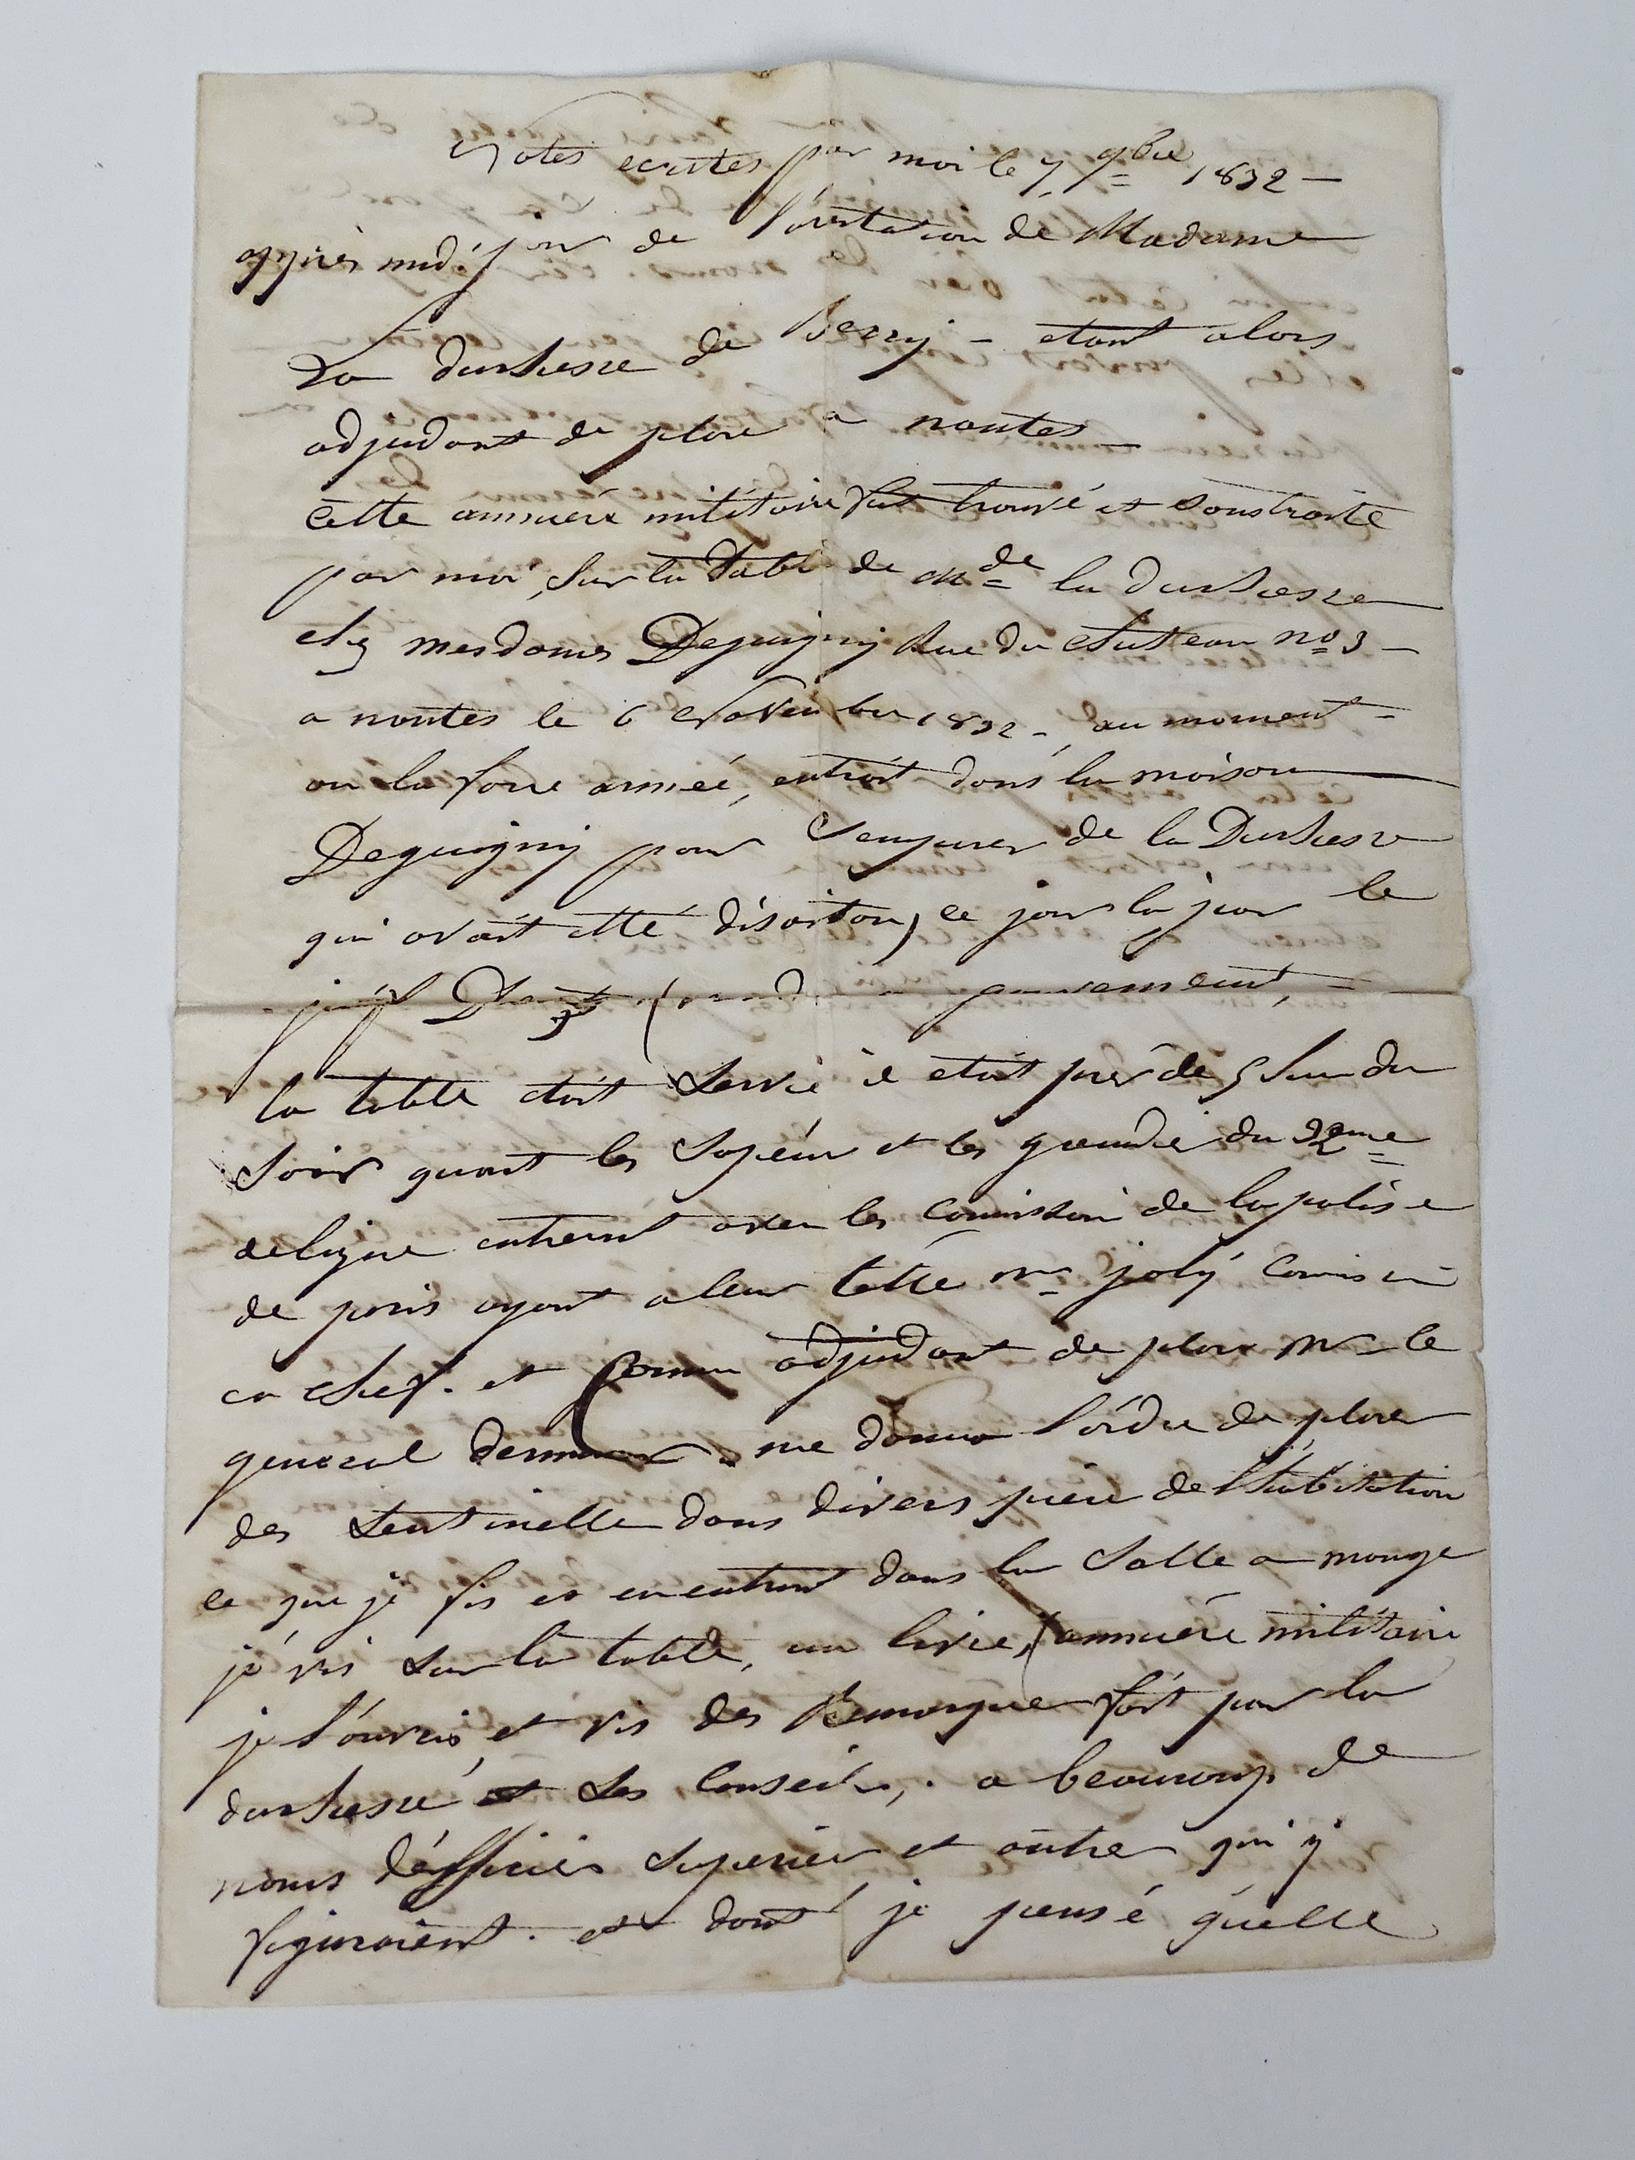 Notes ecrites par moi le 7 9bre 1832 —
apprès midi jour de l'arestation de Madame
La duchesse de Berry – etant alors
adjudant de place a nantes –
Cette annuére militaire fut trouvé et soustraite
par moi, sur la table de Mde la duchesse
chez mesdames Deguigny Rue du chateau no 3 –
a nantes le 6 Novembre 1832 – au moment –
ou la force armeé, entrait dans la maison
Deguigny pour s'emparer de la Duchesse
qui avait etté disaiton, ce jour la par le
juif gouvernement, =
la table etait servie il etait près de 5 heu du
soir quant les sapeur et les grenadie du 32eme
de ligne entrerent avec les Comissaire de la polise
de paris ayant a leur tette Mr joly Comis
en chef. et comme adjudant de place Mr le
general dermoncour me donna l'ordre de placer
des sentinelle dans divers piéce de l'habitation
ce que je fis et en entrant dans la salle a mange
je vis sur la table, un livre, (annuére militaire
je l'ouvris et vis des Remarque fait par la
duchesse et ses conseils, a beaucoup de
noms d'officiers superieur et autre qui y
figuraient. et dont je pensé qu'elle